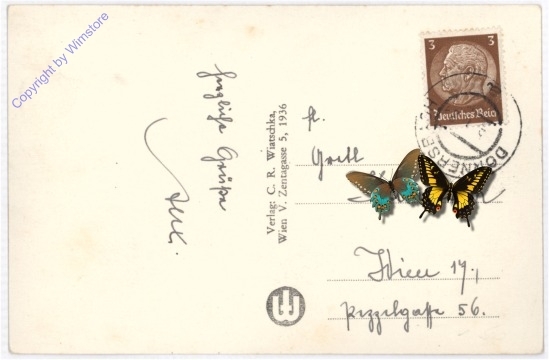 Copyright by Wimstore
herzliche Grüße
Verlag: C. R. Wiatschka,
Wien V. Zentagasse 5, 1936
3 3
Deutsches Reich
DÖRNERSBACH
Fr.
Gretl
Wien 17.,
Pezzlgasse 56.
W